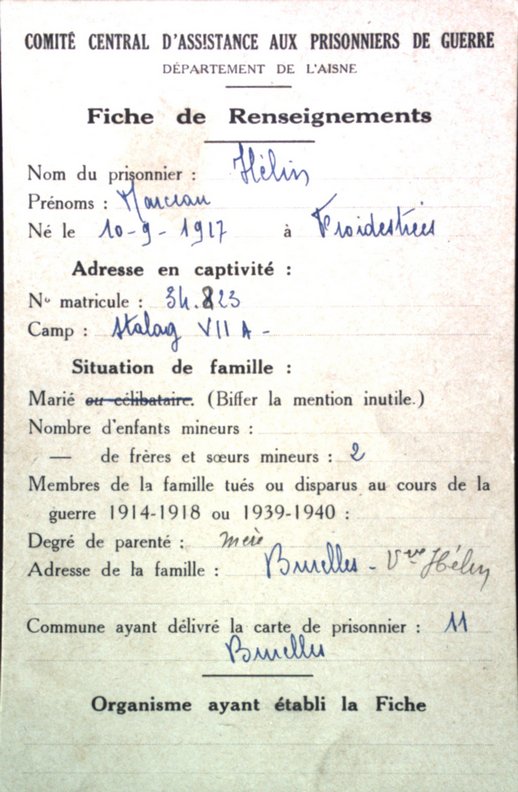 COMITÉ CENTRAL D'ASSISTANCE AUX PRISONNIERS DE GUERRE
DÉPARTEMENT DE L'AISNE
Fiche de Renseignements
Nom du prisonnier : Hélin
Prénoms : Marceau
Né le 10-9-1917 à Froidestrées
Adresse en captivité :
No matricule : 34.823
Camp : Stalag VII A -
Situation de famille :
Marié ou célibataire. (Biffer la mention inutile.)
Nombre d'enfants mineurs :
— de frères et sœurs mineurs : 2
Membres de la famille tués ou disparus au cours de la
guerre 1914-1918 ou 1939-1940 :
Degré de parenté : mère
Adresse de la famille : Burelles - Vve Hélin
Commune ayant délivré la carte de prisonnier : 11
Burelles
Organisme ayant établi la Fiche